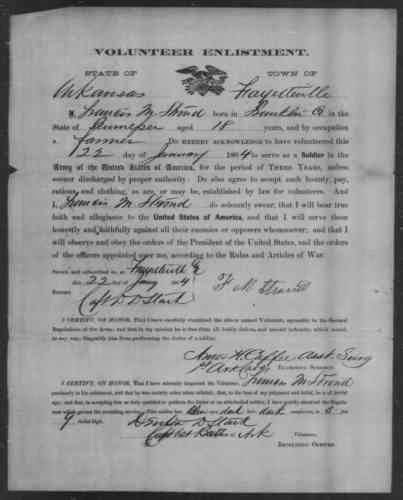 VOLUNTEER ENLISTMENT.
STATE OF TOWN OF
Arkansas Fayetteville
I, Francis M Stroud born in Franklin Co in the
State of Tennessee aged 18 years, and by occupation
a Farmer Do HEREBY ACKNOWLEDGE to have volunteered this
22 day of January 1864 to serve as a Soldier in the
Army of the United States of America, for the period of THREE YEARS, unless
sooner discharged by proper authority: Do also agree to accept such bounty, pay,
rations and clothing, as are, or may be, established by law for volunteers. And
I, Francis M Stroud do solemnly swear, that I will bear true
faith and allegiance to the United States of America, and that I will serve them
honestly and faithfully against all their enemies or opposers whomsoever; and that I
will observe and obey the orders of the President of the United States, and the orders of
the officers appointed over me, according to the Rules and Articles of War.
Sworn and subscribed to, at Fayetteville
this 22 day of Jany 1864
BEFORE F M Stroud
Capt D D Stark
I CERTIFY, ON HONOR, That I have carefully examined the above named Volunteer, agreeably to the General
Regulations of the Army, and that in my opinion he is free from all bodily defects, and mental infirmity, which would,
in any way, disqualify him from performing the duties of a soldier.
Amos H. Asst Surg
1st Ark Cav EXAMINING SURGEON.
I CERTIFY, ON HONOR, That I have minutely inspected the Volunteer, Francis M Stroud
previously to his enlistment, and that he was entirely sober when enlisted; that, to the best of my judgment and belief, he is of lawful
age; and that, in accepting him as duly qualified to perform the duties of an able-bodied soldier, I have strictly observed the Regula-
tions which govern the recruiting service. This soldier has Blue eyes, dark hair, dark complexion, is 5 feet
9 inches high.
D D Stark
Capt 1st Ark Volunteers,
RECRUITING OFFICER.